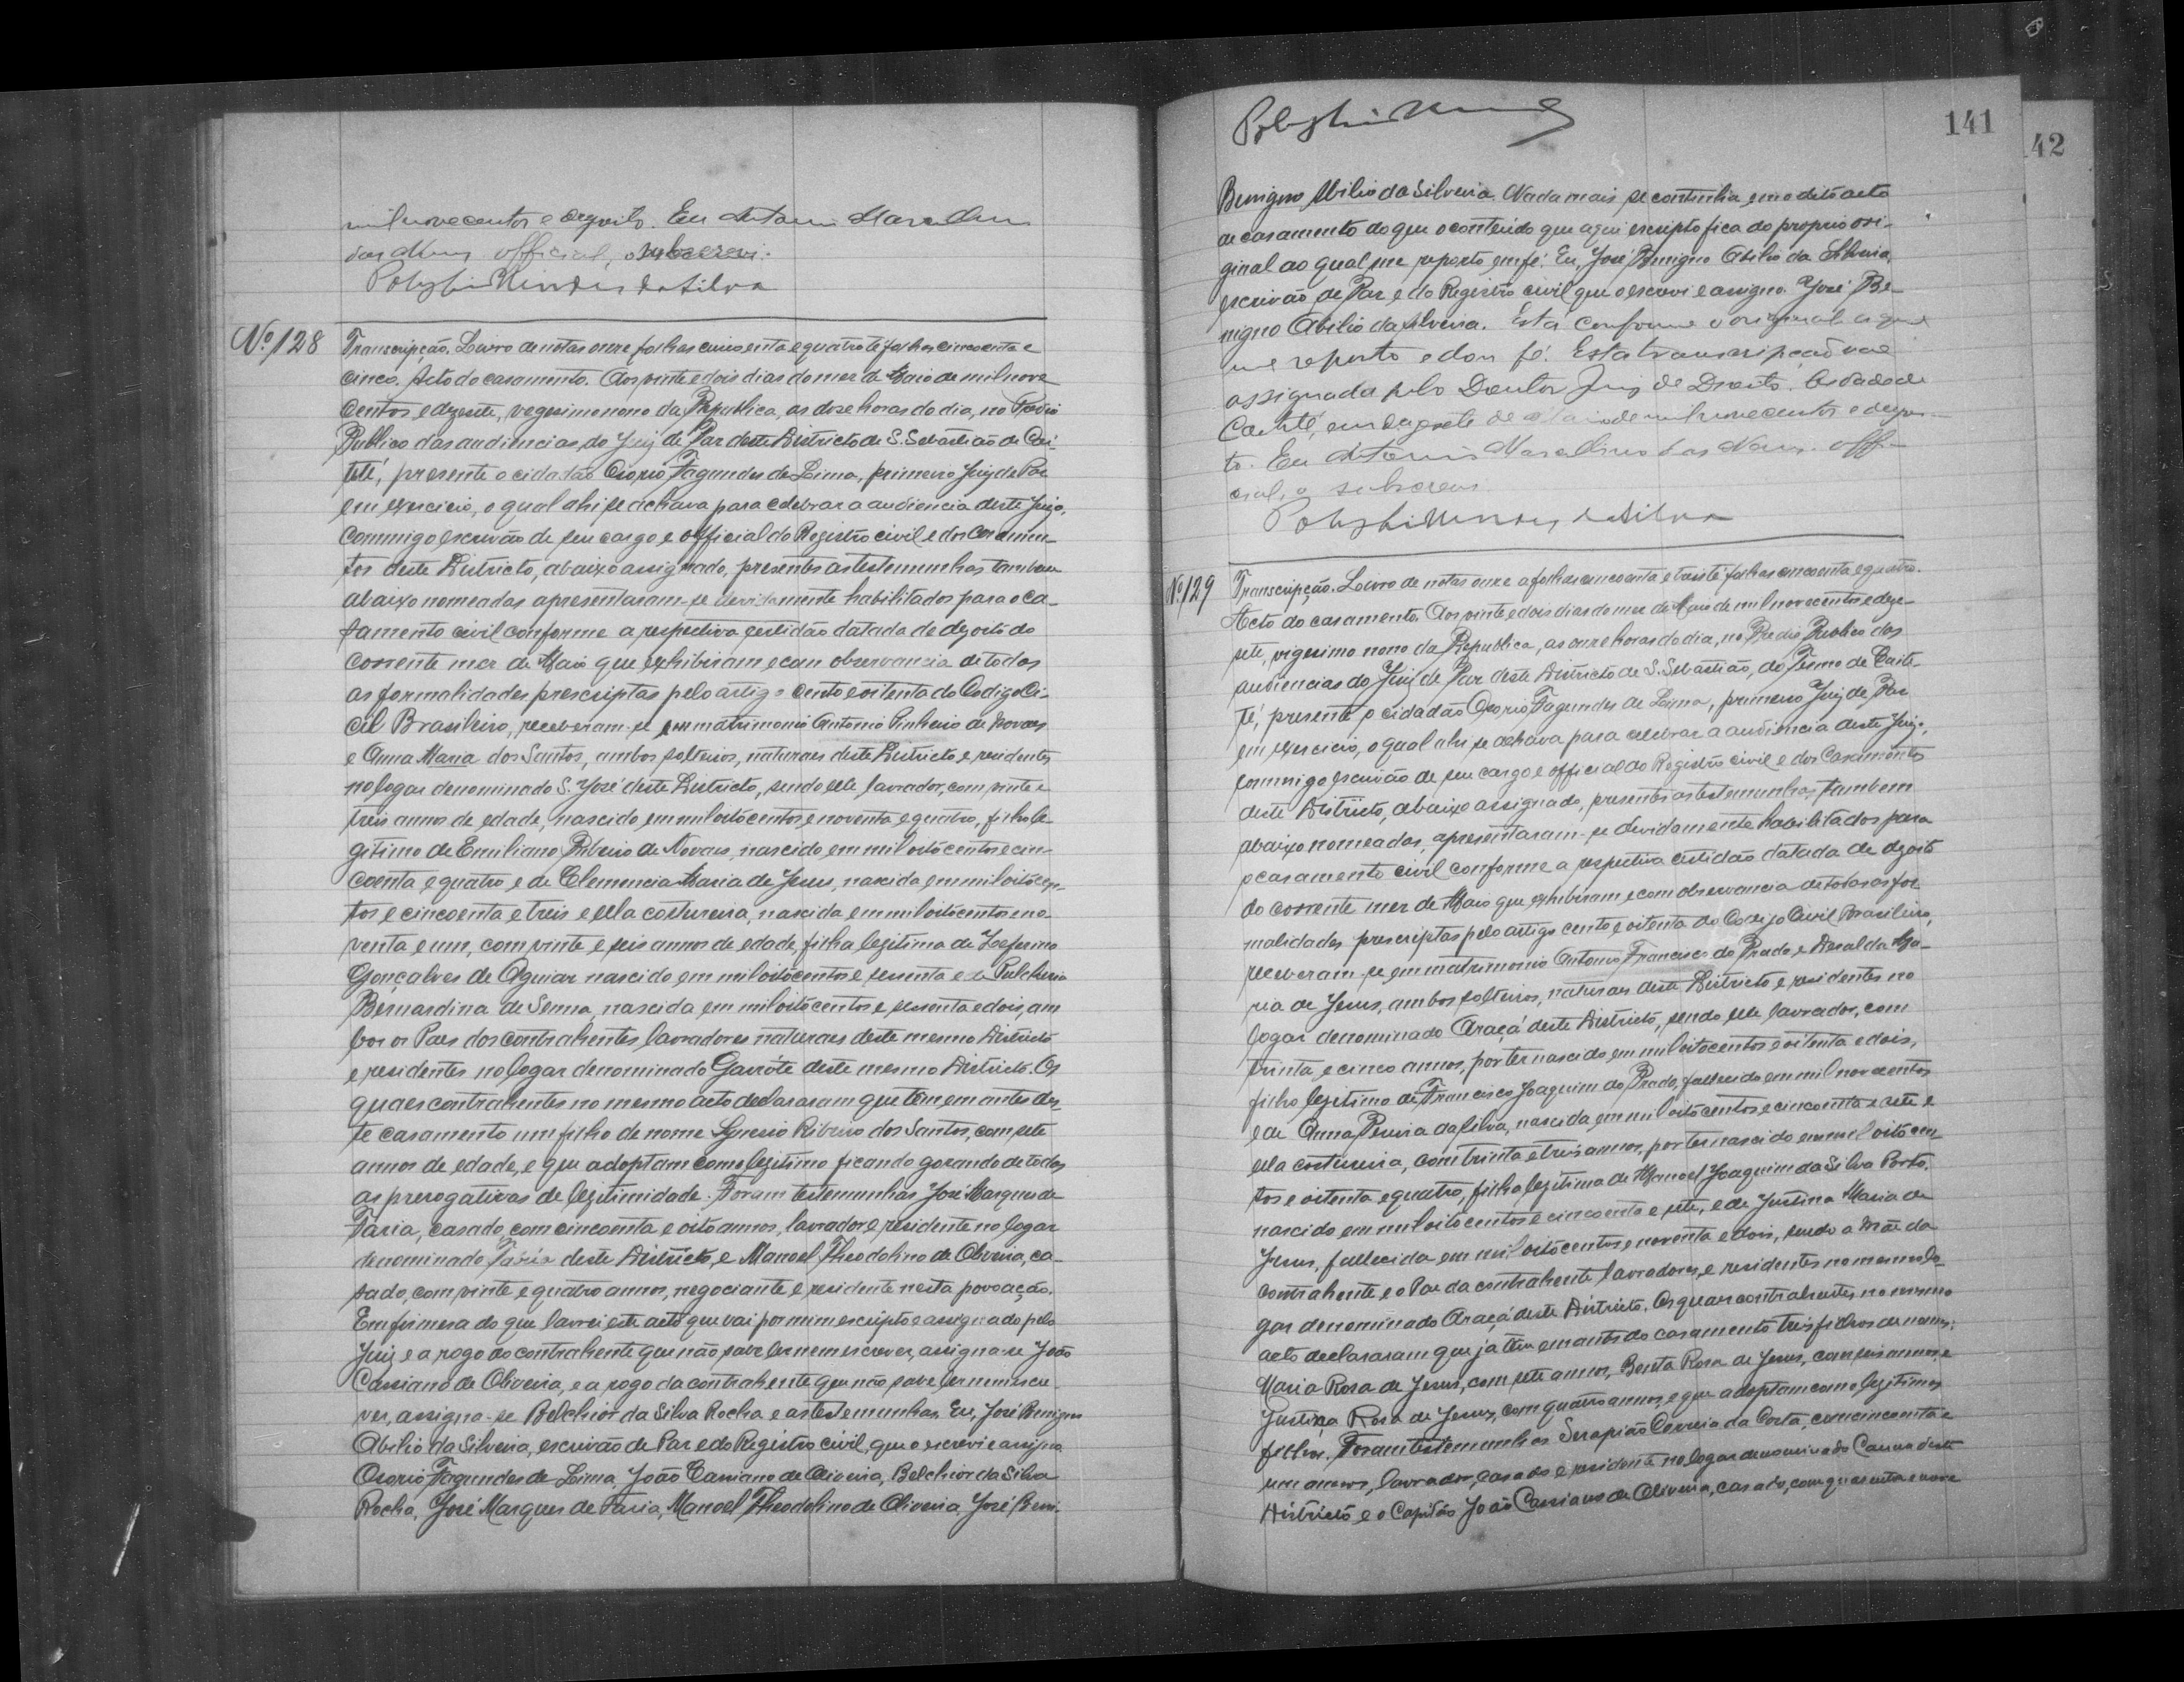 mil novecentos e dezoito. Eu Antonio Marcellino
das Neves official, o subscrevi.
Polybio Mendes da Silva
Nº 128 Transcripção. Livro de notas onze folhas cincoenta e quatro té folhas cincoenta e
cinco. Acto do casamento. Aos vinte e dois dias do mez de Maio de mil nove
centos e dezesete, vegesimo nono da Republica, as doze horas do dia, no Predio
Publico das audiencias do Juiz de Paz deste Districto de S. Sebastião de Cai-
teté, presente o cidadão Osorio Fagundes de Lima, primeiro Juiz de Paz
em exercicio, o qual ahi se achava para celebrar a audiencia deste Juizo,
commigo escrivão de seu cargo e official do Registro civil e dos casamen-
tos deste Districto, abaixo assignado, presentes as testemunhas tambem
abaixo nomeadas apresentaram-se devidamente habilitados para o ca-
samento civil conforme a respectiva certidão datada de dezoito do
corrente mez de Maio que exhibiram e com observancia de todas
as formalidades prescriptas pelo artigo cento e oitenta do Codigo Ci-
vil Brasileiro, receberam-se em matrimonio Antonio Pinheiro de Novaes
e Anna Maria dos Santos, ambos solteiros, naturaes deste Districto e residentes
no logar denominado S. José deste Districto, sendo elle lavrador, com vinte e
treis annos de edade, nascido em mil oitocentos e noventa e quatro, filho le-
gitimo de Emiliano Ribeiro de Novaes, nascido em mil oitocentos e cin-
coenta e quatro e de Clemencia Maria de Jesus, nascida em mil oitocen-
tos e cincoenta e treis e ella costureira, nascida em mil oitocentos e no-
venta e um, com vinte e seis annos de edade, filha legitima de Zeferino
Gonçalves de Aguiar nascido em mil oitocentos e sessenta e de Pulcheria
Bernardina de Senna, nascida em mil oitocentos e sessenta e dois, am
bos os Paes dos contrahentes lavradores naturaes deste mesmo Districto
e residentes no logar denominado Garrote deste mesmo Districto. Os
quaes contrahentes no mesmo acto declararam que têm em antes des-
te casamento um filho de nome Synesio Ribeiro dos Santos, com sete
annos de edade, e que adoptam como legitimo ficando gozando de todas
as prerogativas de legitimidade. Foram testemunhas José Marques de
Faria, casado, com cincoenta e oito annos, lavrador e residente no logar
denominado Faria deste Districto, e Manoel Theodolino de Oliveira, ca-
sado, com vinte e quatro annos, negociante e residente nesta povoação.
Em firmeza do que lavrei este acto que vai por mim escripto e assignado pelo
Juiz e a rogo do contrahente que não sabe ler nem escrever, assigna-se João
Cassiano de Oliveira, e a rogo da contrahente que não sabe ler nem escre-
ver, assigna-se Belchior da Silva Rocha e as testemunhas. Eu, José Benigno
Abilio da Silveira, escrivão de Paz e do Registro civil, que o escrevi e assigno
Osorio Fagundes de Lima, João Cassiano de Oliveira, Belchior da Silva
Rocha, José Marques de Faria, Manoel Theodolino de Oliveira, José Beni-
141
42
Benigno Abilio da Silveira. Nada mais se continha em o dito acto
de casamento do que o conteúdo que aqui escripto fica do proprio ori-
ginal ao qual me reporto em fé. Eu, José Benigno Abilio da Silveira,
escrivão de Paz e do Registro civil que o escrevi e assigno. José Be-
nigno Abilio da Silveira. Está conforme o original a que
me reporto e dou fé. Esta transcripção vae
assignada pelo Doutor Juiz de Direito. Cidade de
Caiteté, em dezesete de Maio de mil novecentos e dezoi-
to. Eu Antonio Marcellino das Neves offi-
cial, o subscrevi
Polybio Mendes da Silva
Nº 129 Transcripção. Livro de notas onze a folhas cincoenta e treis té folhas cincoenta e quatro.
Acto do casamento. Aos vinte e dois dias do mez de Maio de mil novecentos e deze-
sete, vigesimo nono da Republica, as onze horas do dia, no Predio Publico das
audiencias do Juiz de Paz deste Districto de S. Sebastião, do Termo de Caite-
té, presente o cidadão Osorio Fagundes de Lima, primeiro Juiz de Paz
em exercicio, o qual ahi se achava para celebrar a audiencia deste Juizo,
commigo escrivão de seu cargo e official do Registro civil e dos Casamentos
deste Districto, abaixo assignado, presentes as testemunhas, tambem
abaixo nomeadas, apresentaram-se devidamente habilitados para
o casamento civil conforme a respectiva certidão datada de dezoito
do corrente mez de Maio que exhibiram e com observancia de todas as for-
malidades prescriptas pelo artigo cento e oitenta do Codigo Civil Brasileiro,
receberam-se em matrimonio Antonio Francisco do Prado e Deralda Ma-
ria de Jesus, ambos solteiros, naturaes deste Districto e residentes no
logar denominado Araçá deste Districto, sendo elle lavrador, com
trinta e cinco annos, por ter nascido em mil oitocentos e oitenta e dois,
filho legitimo de Francisco Joaquim do Prado, fallecido em mil novecentos
e de Anna Pereira da Silva, nascida em mil oitocentos e cincoenta e sete e
ella costureira, com trinta e treis annos, por ter nascido em mil oitocen
tos e oitenta e quatro, filha legitima de Manoel Joaquim da Silva Porto,
nascido em mil oitocentos e cincoenta e sete, e de Justina Maria de
Jesus, fallecida em mil oitocentos e noventa e dois, sendo a Mãe do
contrahente e o Pae da contrahente lavradores, e residentes no mesmo lo-
gar denominado Araçá deste Districto. Os quaes contrahentes no mesmo
acto declararam que já têm em antes do casamento treis filhos de nomes:
Maria Rosa de Jesus, com sete annos, Benta Rosa de Jesus, com seis annos, e
Justina Rosa de Jesus, com quatro annos, e que adoptam como legitimos
filhos. Foram testemunhas Serapião Correia da Costa, com cincoenta e
um annos, lavrador, casado e residente no logar denominado deste
Districto e o Capitão João Cassiano de Oliveira, casado, com quarenta e nove